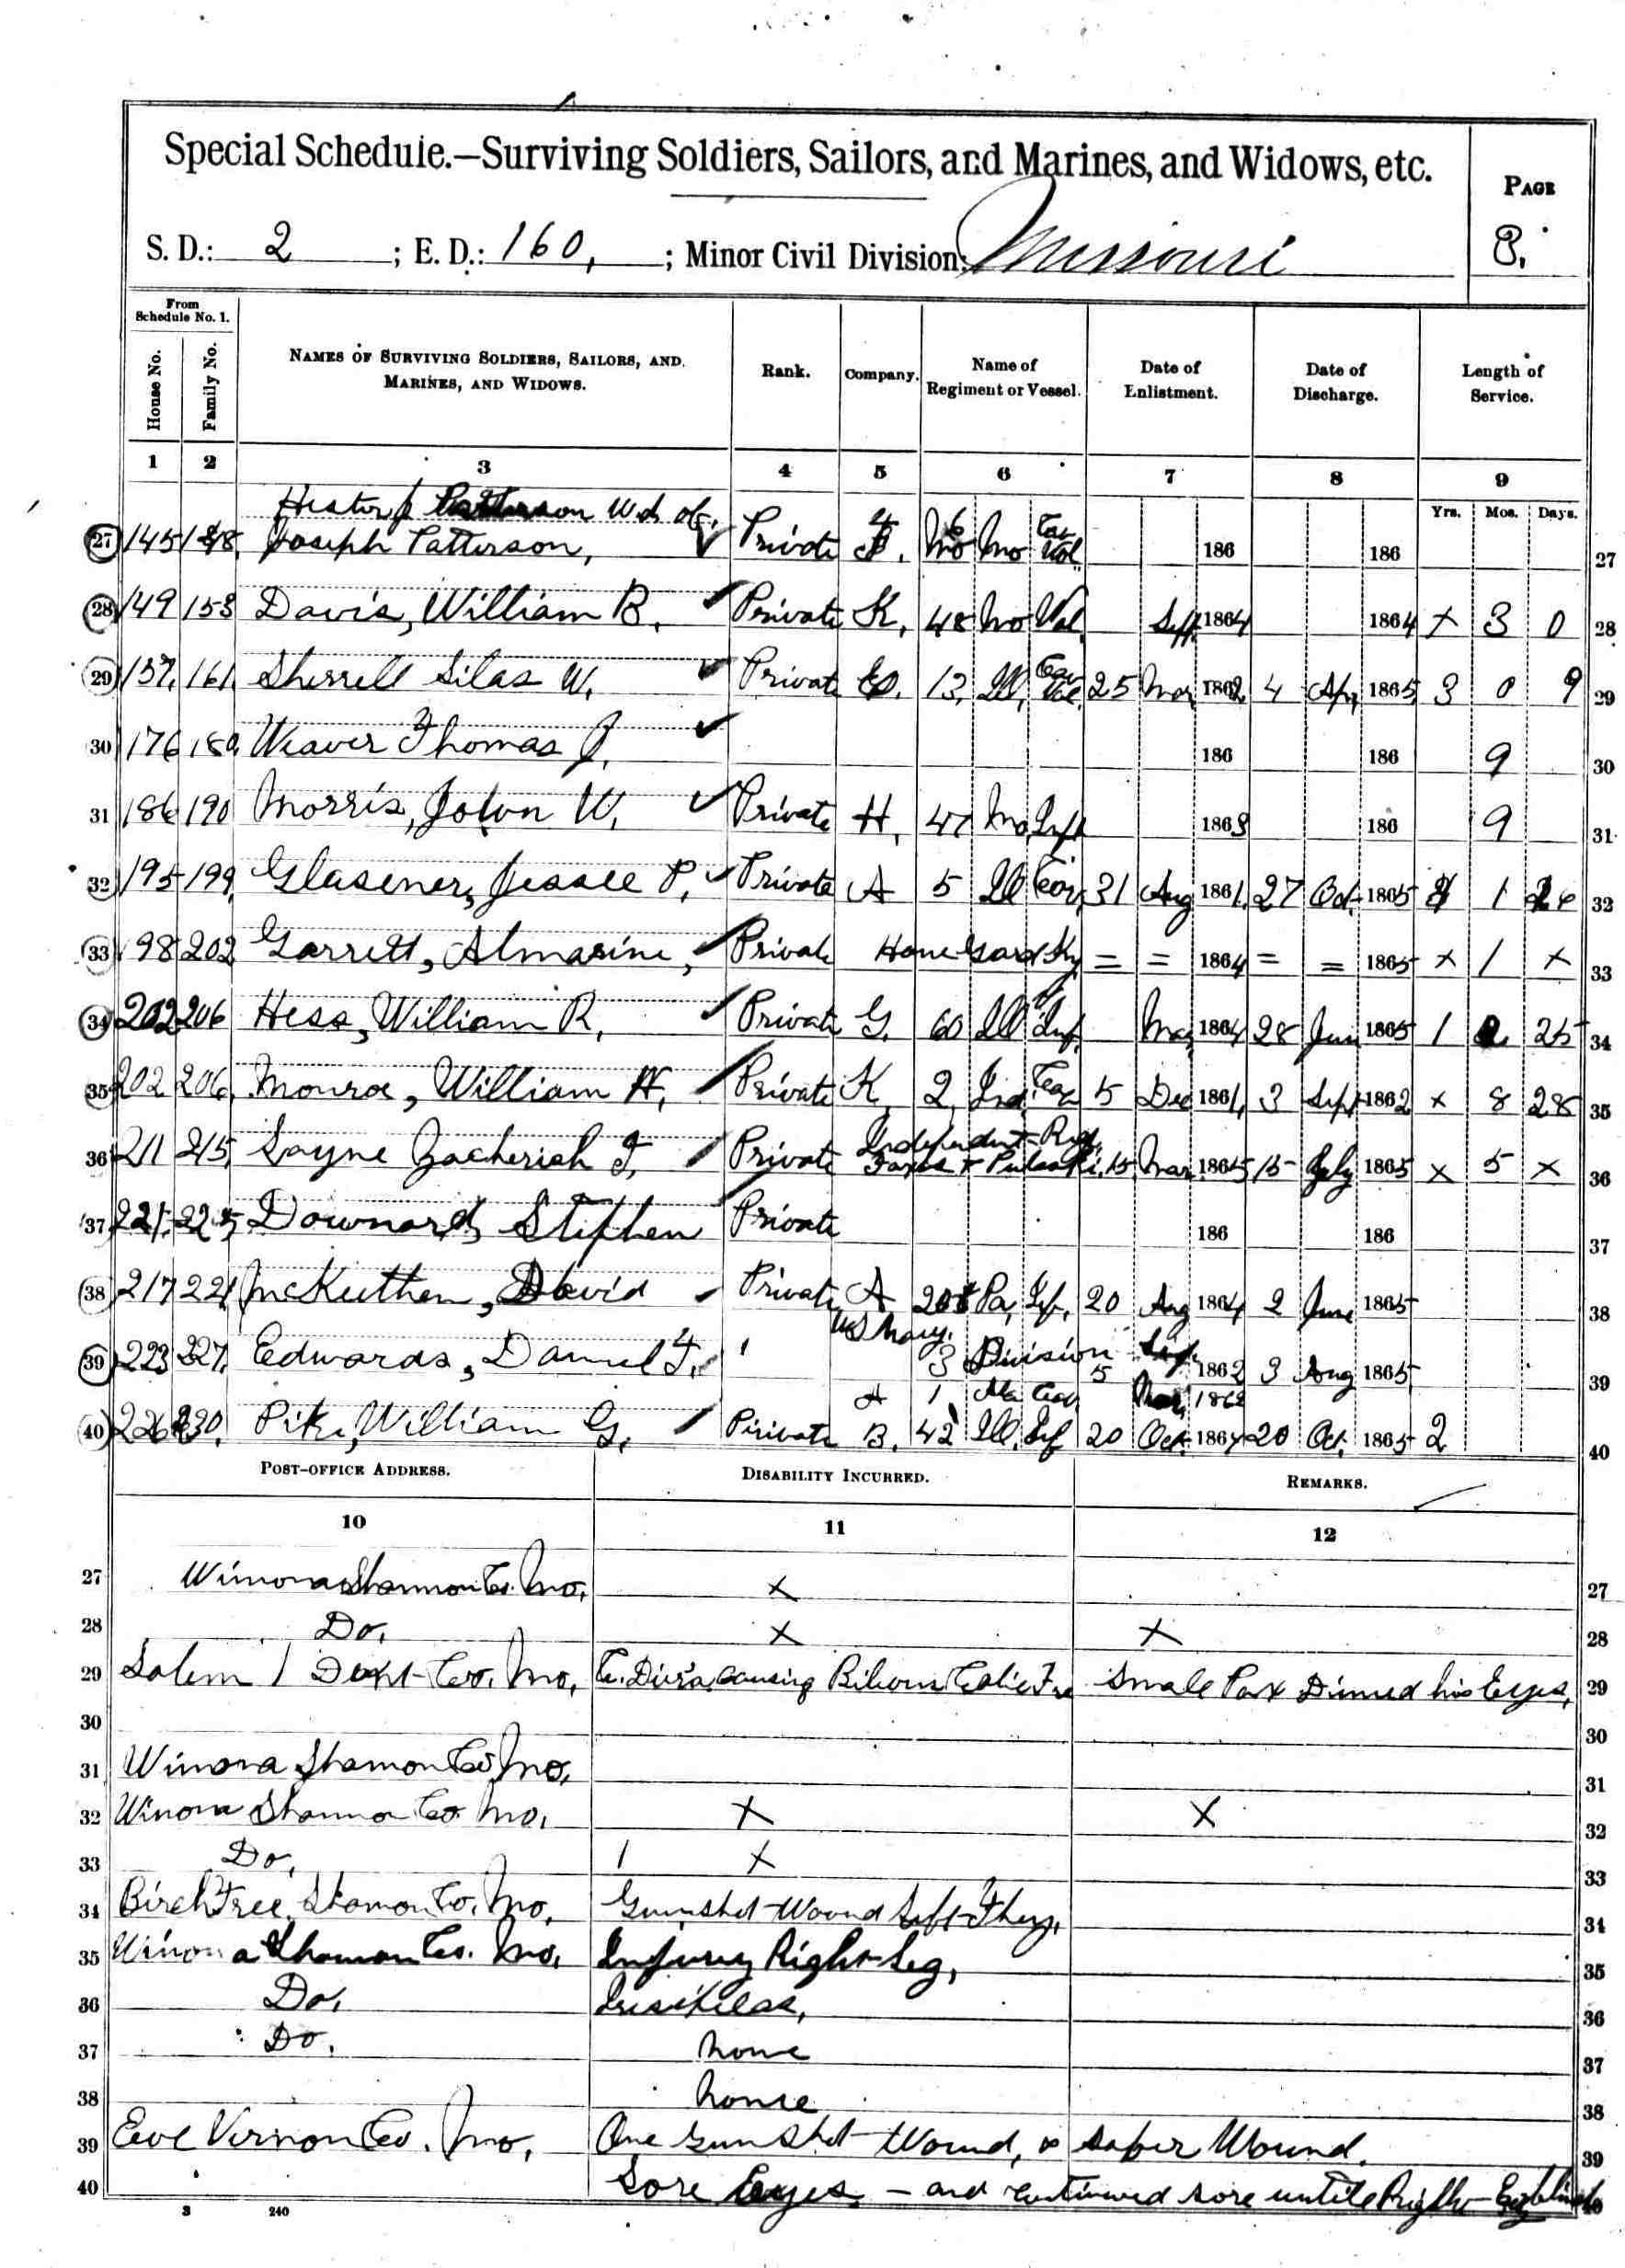 Special Schedule.—Surviving Soldiers, Sailors, and Marines, and Widows, etc.
PAGE
8.
S. D.: 2 ; E. D.: 160, ; Minor Civil Division: Missouri
From Schedule No. 1.
House No. Family No. NAMES OF SURVIVING SOLDIERS, SAILORS, AND MARINES, AND WIDOWS. Rank. Company. Name of Regiment or Vessel. Date of Enlistment. Date of Discharge. Length of Service.
1 2 3 4 5 6 7 8 9
Yrs. Mos. Days.
Patterson Wd of,
27 145 148 Joseph Patterson, Private Mo Cav Vol. 186 186 27
28 149 153 Davis, William B. Private K, 48 Mo Vol. Sept 1864 1864 x 3 0 28
29 157, 161, Sherrell Silas W. Private 13, Ill, Cav Vol. 25 Mar, 1862 4 Apr, 1865 3 0 9 29
30 176 180, Weaver Thomas J. 186 186 9 30
31 186 190 Morris, John W. Private H, 47 Mo Inft 1863 186 9 31
32 195 199, Glasener, Jessee P. Private A 5 Ill Cav, 31 Aug 1861, 27 Oct. 1865 1 32
33 198 202 Garrett, Almarine, Private Home Gard Ky = = 1864 = = 1865 x 1 x 33
34 202 206 Hess, William R. Private G. 60 Ill Inf. 1864 28 1865 1 25 34
35 202 206, Monroe, William H, Private K 2, Ind, Cav 5 Dec 1861, 3 Sept 1862 x 8 28 35
36 211 215, Layne Zacheriah T. Private Independent Pulaski, 15 Mar 1865 15 July 1865 x 5 x 36
37 221, 225 Downard, Stephen Private 186 186 37
38 217 221 McKuthen, David Private A Pa, Inf, 20 Aug 1864 2 June 1865 38
US Navy.
39 223 227, Edwards, Daniel T. 3 Division 1862 3 Aug 1865 39
A 1 Cav 5 1862
40 226 230, Pike, William G, Pirivate B. 42 Ill. Inf 20 Oct. 1864 20 Oct, 1865 2 40
POST-OFFICE ADDRESS. DISABILITY INCURRED. REMARKS.
10 11 12
27 Winona Shannon Co. Mo, x 27
28 Do, x x 28
29 Salem Dent Co. Mo, causing Smale Pox Dimed his Eyes, 29
30 30
31 Winona Shamon Co Mo, 31
32 Winona Shannon Co Mo, x x 32
33 Do, x 33
34 Birch Tree Shamon Co. Mo, Gunshot Wound Left 34
35 Winona Shamon Co. Mo, Injury Right Leg, 35
36 Do, 36
37 Do. none 37
38 none 38
39 Eve Vernon Co. Mo, One Gunshot Wound, & saber Wound. 39
40 Sore Eyes - and continued sore untile Right 40
3 240